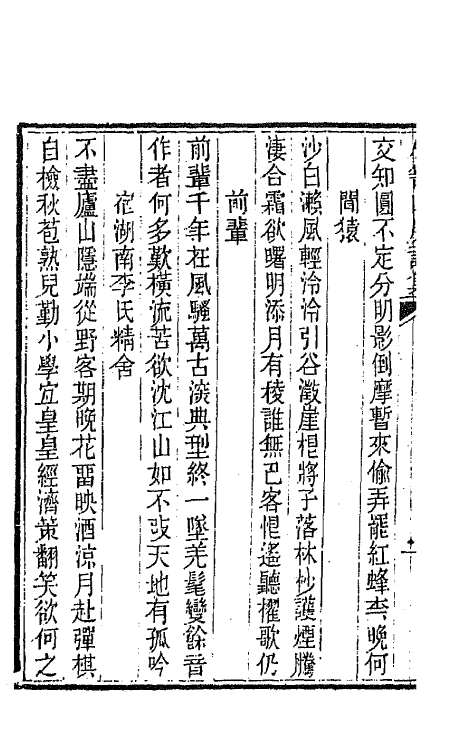 交知圓不定分明影倒摩暫來偷弄罷紅蜂李晚何
聞猿
沙白瀨風輕泠泠引谷澂崖棍將子落林杪護煙騰
淒合霜欲曙明添月有稜誰無巴客恨遙聽櫂歌仍
前輩
前輩千年在風騷萬古淡典型終一墜羌髦變餘音
作者何多歎橫流苦欲沈江山如不攱天地有孤吟
宿湖南李氏精舍
不盡廬山隱端從野客期晚花畱映酒涼月赴彈棋
自檢秋苞熟兒勤小學宜皇皇經濟策翻笑欲何之